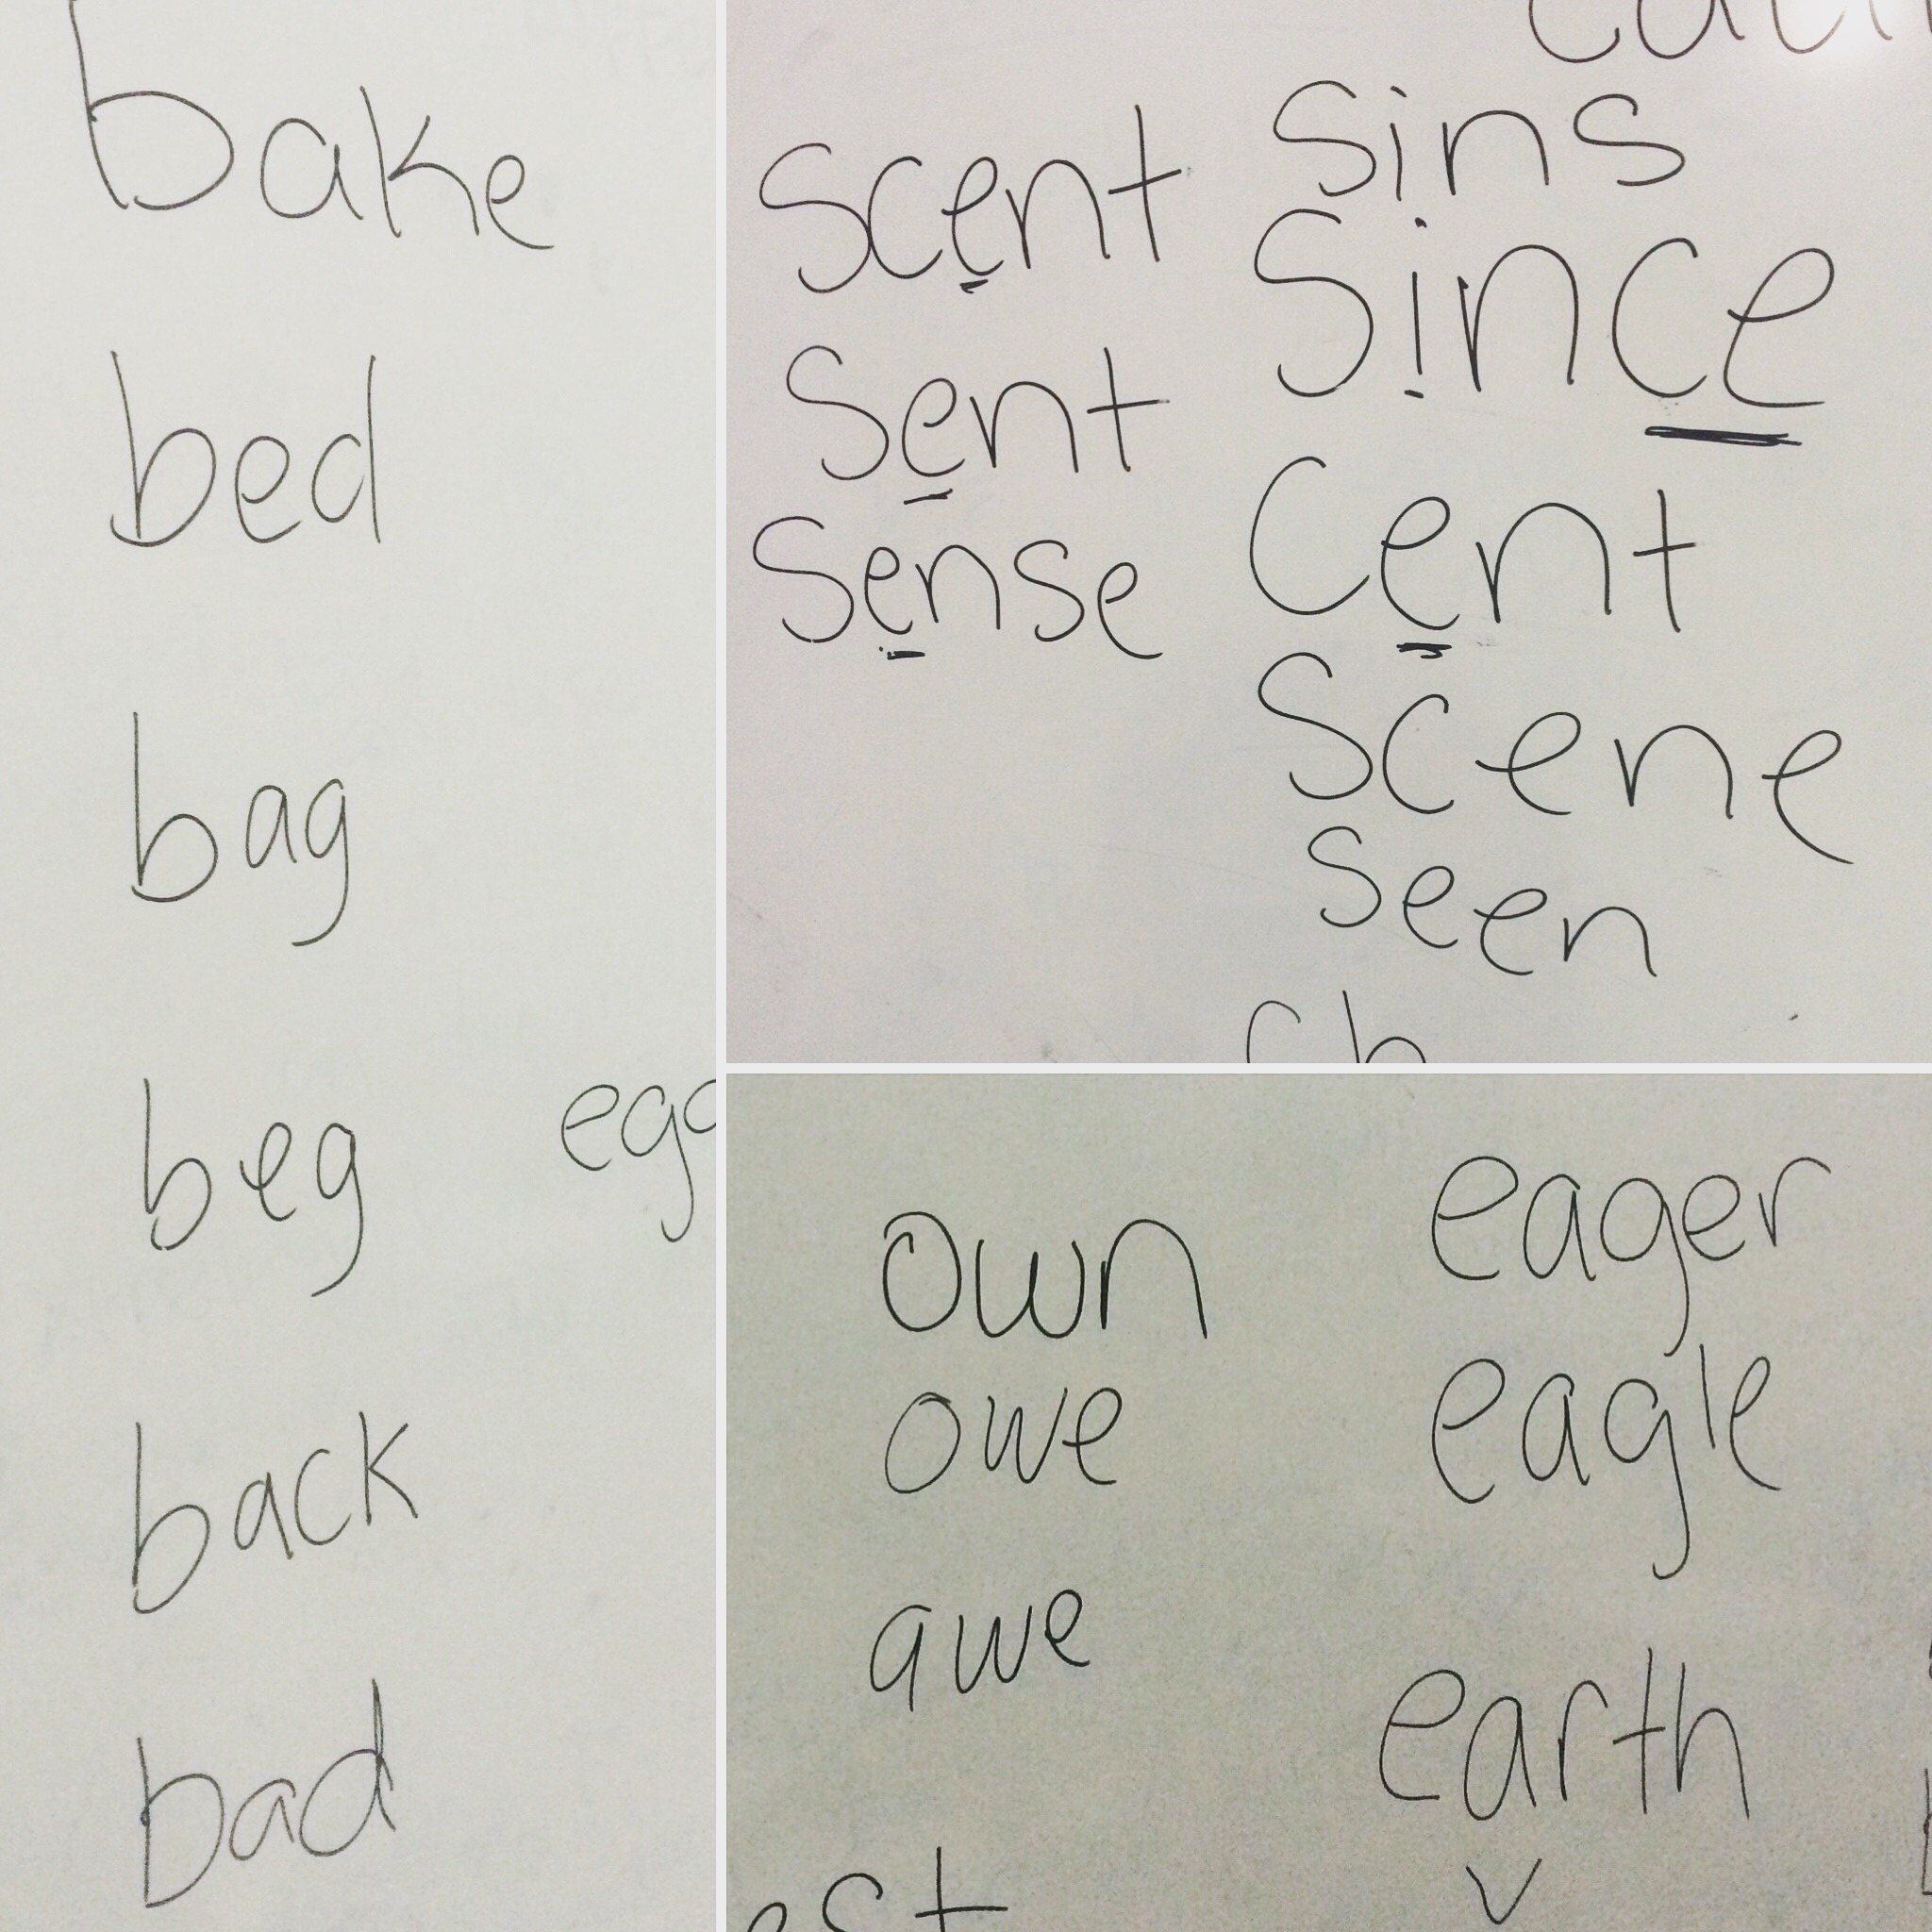 bake
bed
bag
beg
back
bad
scent
sent
sense
sins
since
cent
scene
seen
own
owe
awe
eager
eagle
earth